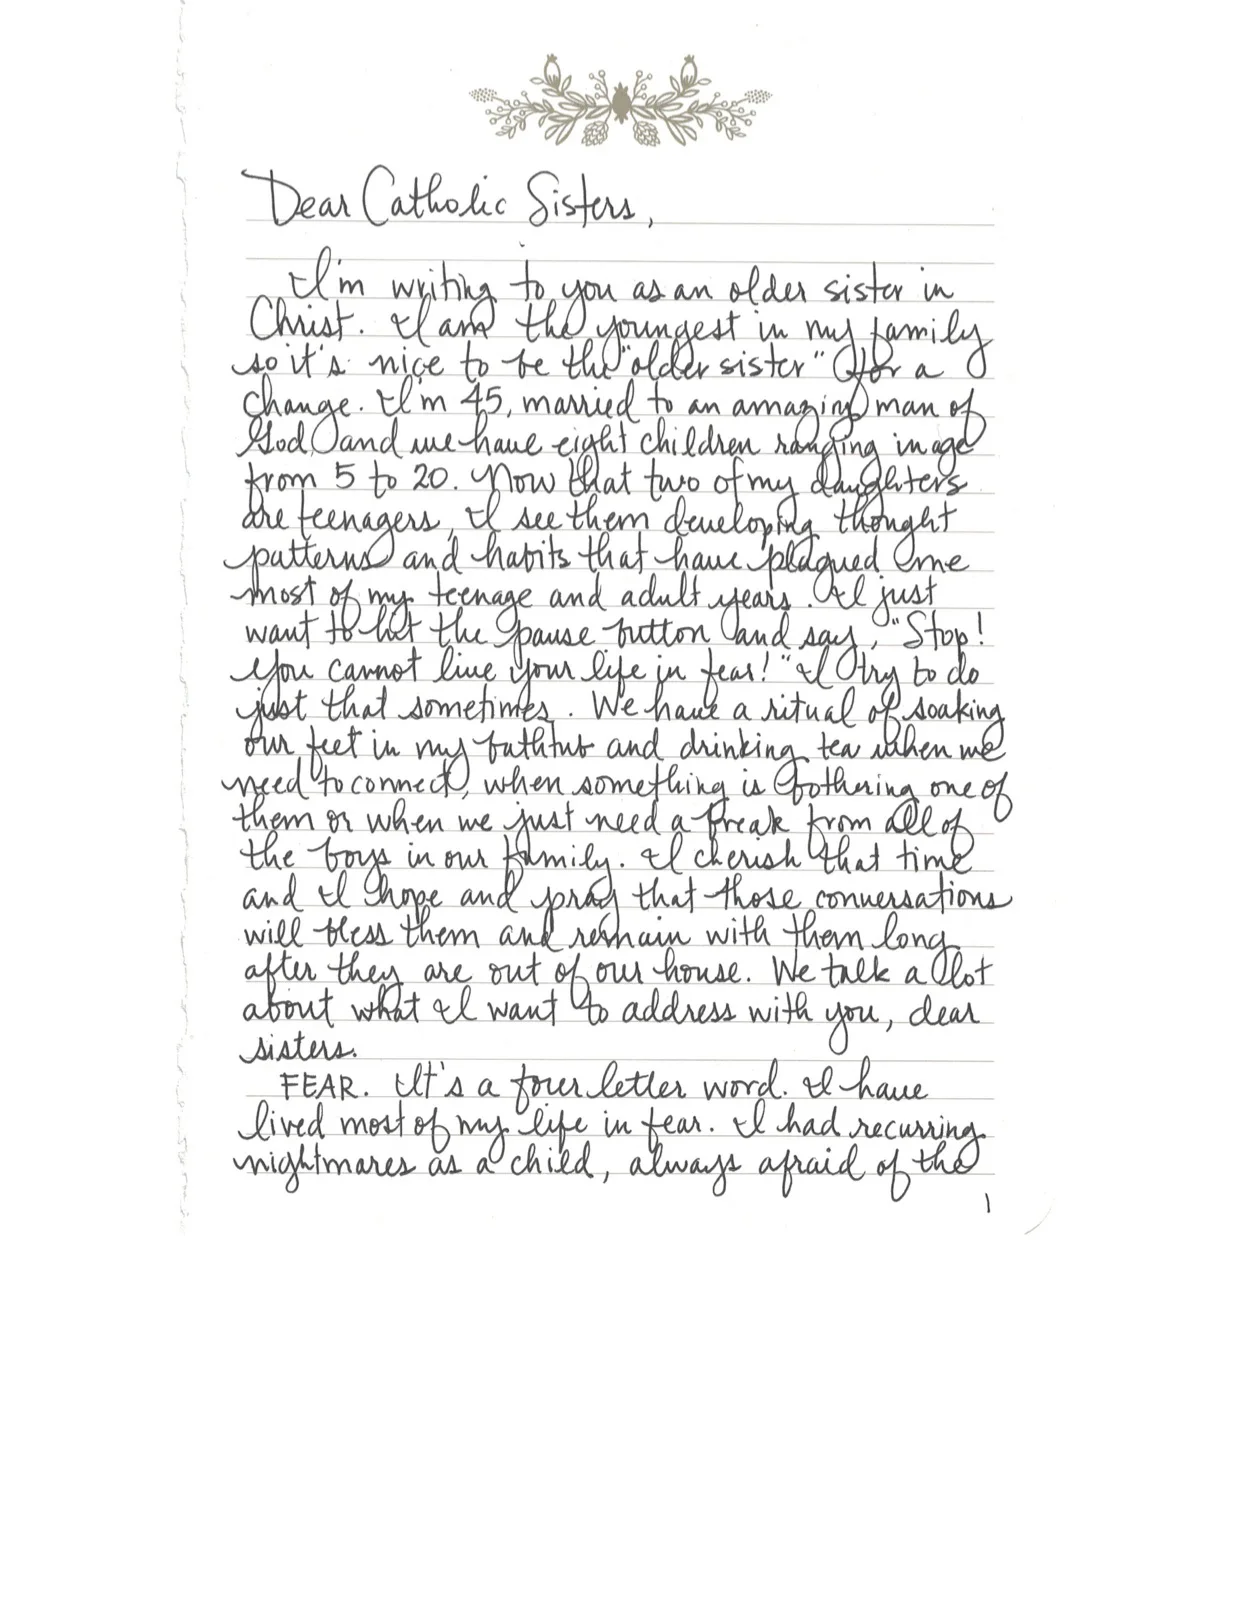 Dear Catholic Sisters,
I'm writing to you as an older sister in
Christ. I am the youngest in my family
so it's nice to be the "older sister" for a
change. I'm 45, married to an amazing man of
God and we have eight children ranging in age
from 5 to 20. Now that two of my daughters
are teenagers, I see them developing thought
patterns and habits that have plagued me
most of my teenage and adult years. I just
want to hit the pause button and say, "Stop!
You cannot live your life in fear!" I try to do
just that sometimes. We have a ritual of soaking
our feet in my bathtub and drinking tea when we
need to connect, when something is bothering one of
them or when we just need a break from all of
the boys in our family. I cherish that time
and I hope and pray that those conversations
will bless them and remain with them long
after they are out of our house. We talk a lot
about what I want to address with you, dear
sisters.
FEAR. It's a four letter word. I have
lived most of my life in fear. I had recurring
nightmares as a child, always afraid of the
1